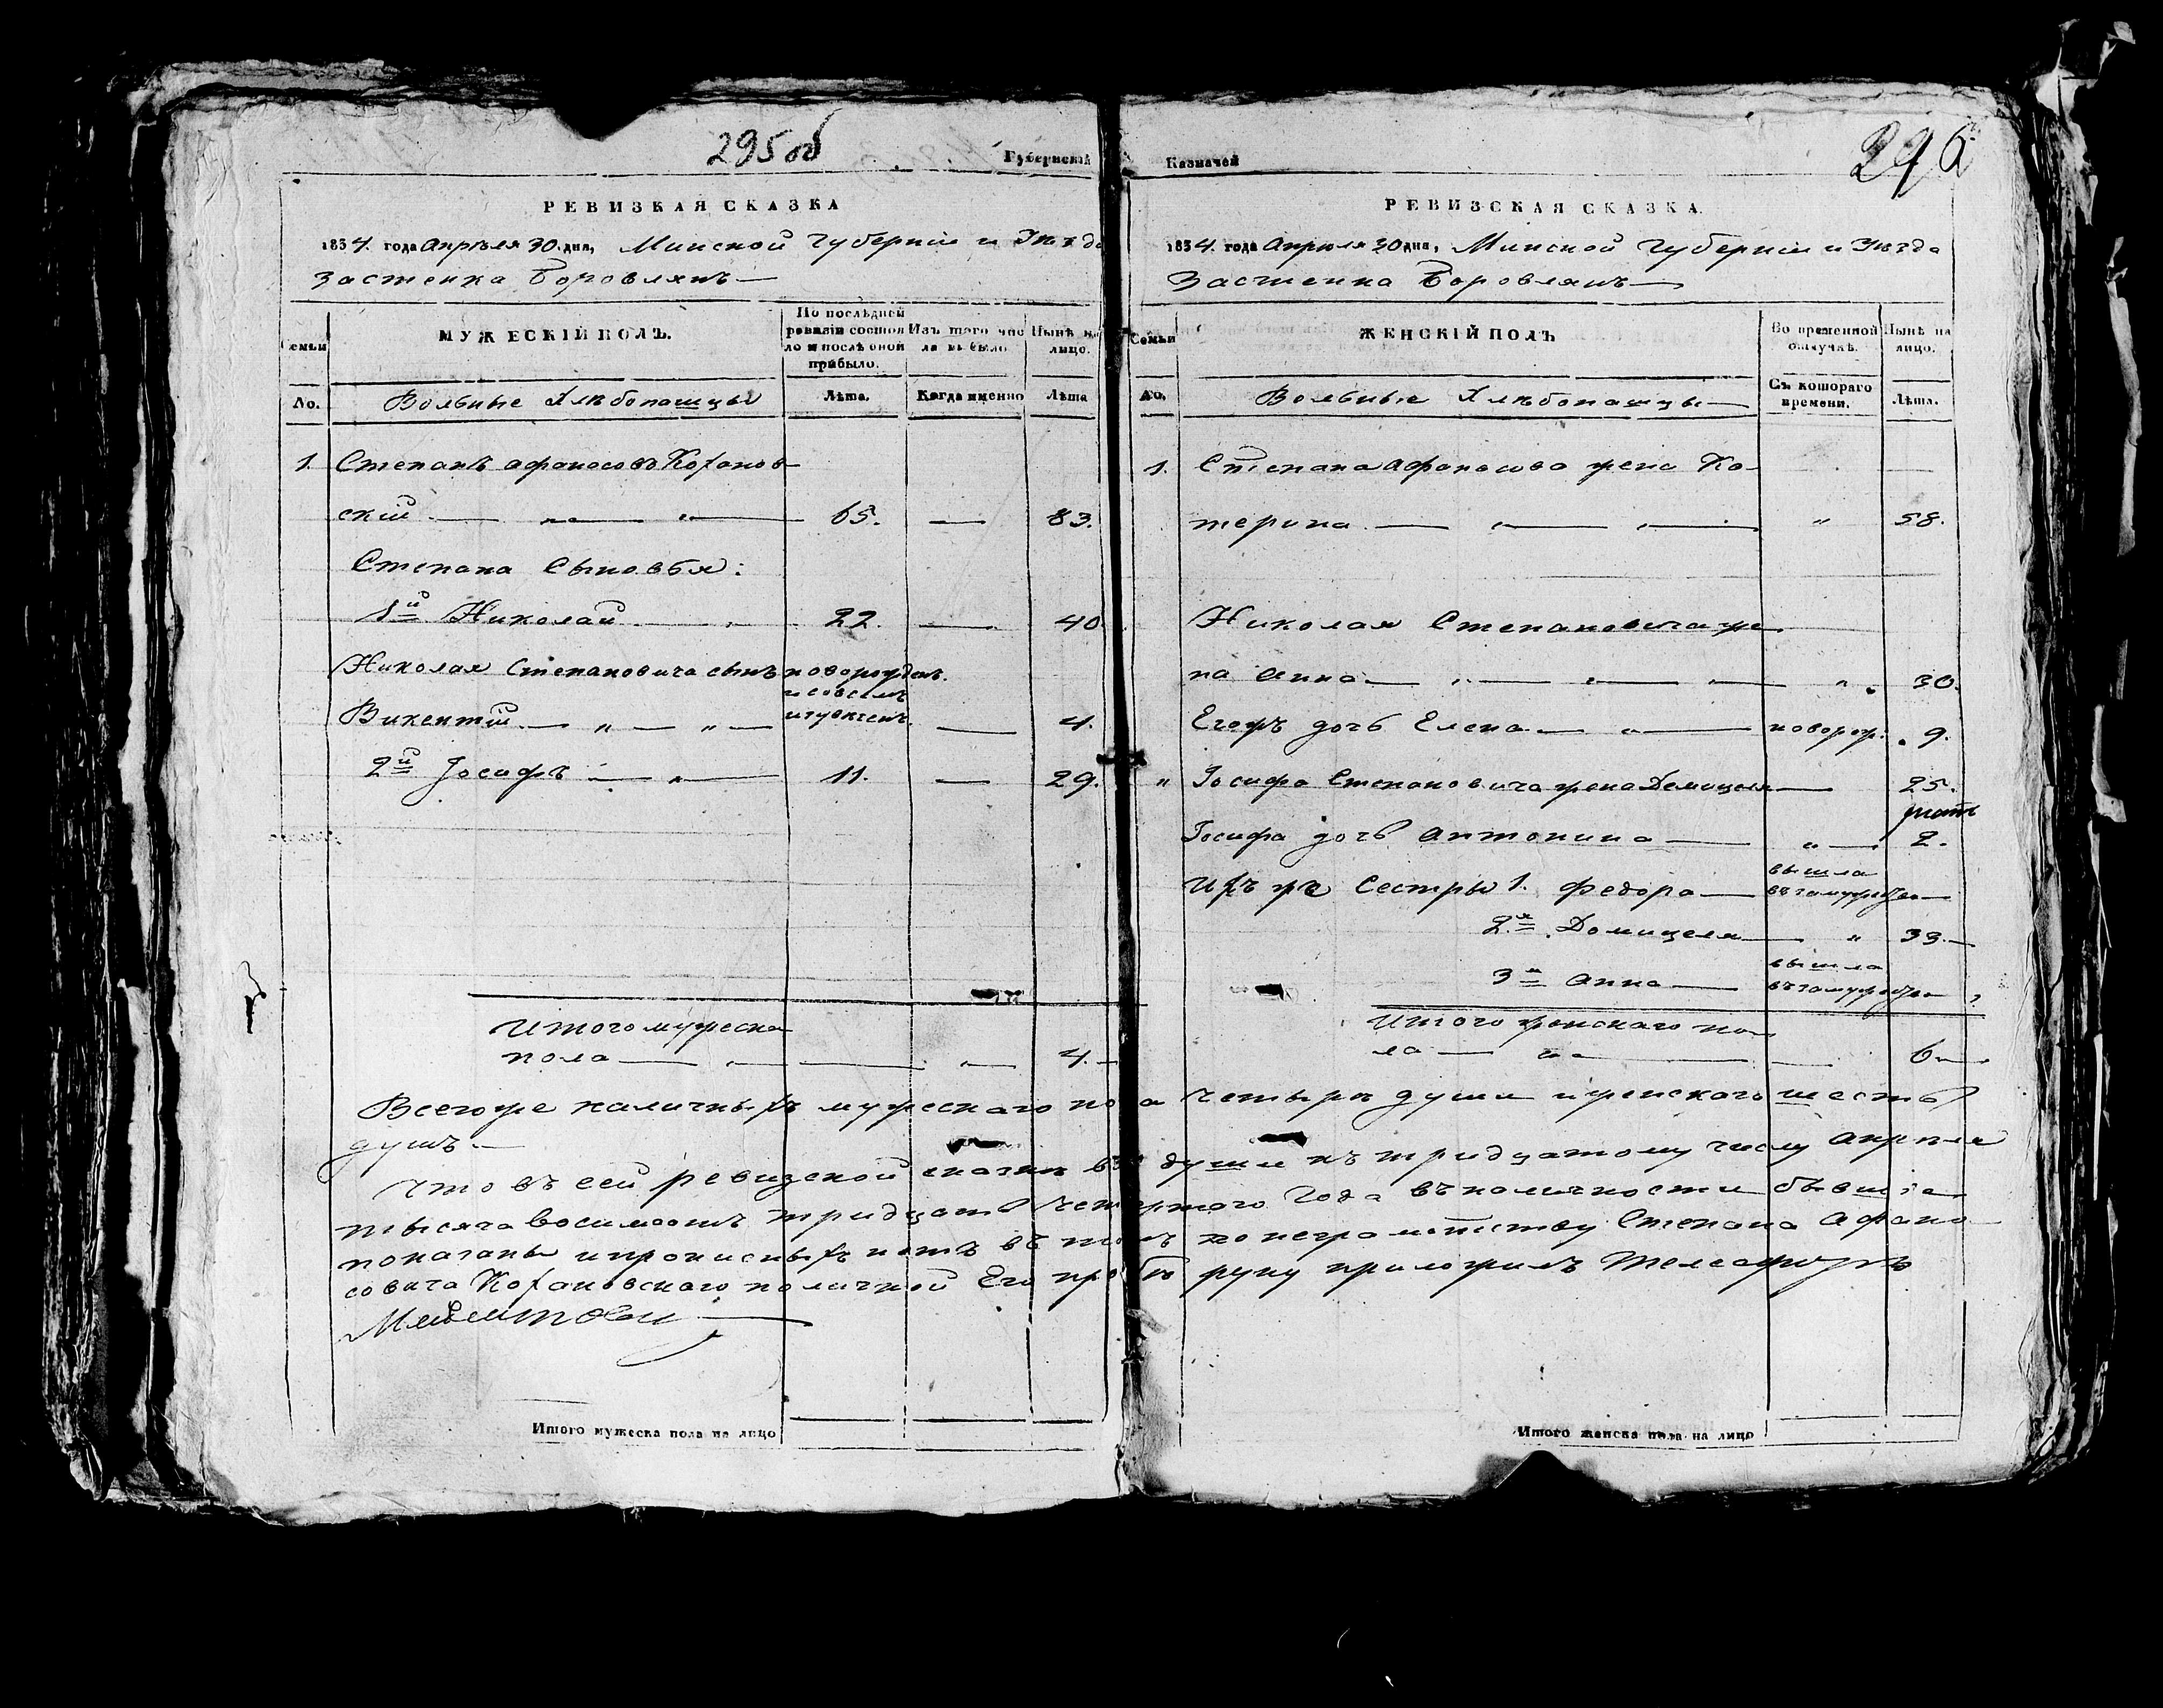 295 об
Губернскій
РЕВИЗКАЯ СКАЗКА
1834. года Апрѣля 30. дня, Минской Губерніи и Уѣзда
Застенка Боровлянъ
Семьи
МУЖЕСКІЙ ПОЛЪ.
По послѣдней ревизіи состояло и послѣ оной прибыло.
Изъ того числа выбыло
Нынѣ на лицо.
No.
Вольные Хлѣбопашцы
Лѣта.
Когда именно
Лѣта
1. Степанъ Афанасовъ Коханов-
скій 65. — 83.
Степана Сыновья:
1й Николай 22. — 40
Николая Степановича сынъ новорожден.
Викентій — " — " — — 4.
2й Іосифъ 11. — 29.
Итого мужеска
пола 4.
Всего же наличныхъ мужескаго пола четыри души и женского шесть
душъ.
Что въ сей ревизской сказки всѣ души къ тридцатому числу Апреля
тысяча восимсотъ тридцать четвертого Года въ наличности бывшіе
показаны и прописныхъ нетъ въ томъ по неграмотству Степана Афана-
совича Кохановскаго по личной Его прозбе руку приложилъ Телесфоръ
Итого мужеска пола на лицо
Казначей
296
РЕВИЗСКАЯ СКАЗКА.
1834. года Апреля 30 дня, Минской Губерніи и Уѣзда
Застенка Боровлянъ
Семьи
ЖЕНСКІЙ ПОЛЪ
Во временной отлучкѣ.
Нынѣ на лицо.
No.
Вольные Хлѣбопашцы
Съ котораго времени.
Лѣта.
1. Степана Афанасова жена Ка-
терина " 58.
Николая Степановича же-
на Анна " 30.
Егожъ дочь Елена новорож. 9.
" Іосифа Степановича жена Домицеля 25.
Іосифа дочь Антонина " 2.
Ихъ же Сестры 1. Федора вышла въ замужство
2я Домицеля " 33.
3я Анна вышла въ замужство
Итого женскаго по-
ла 6
Итого женска пола на лицо